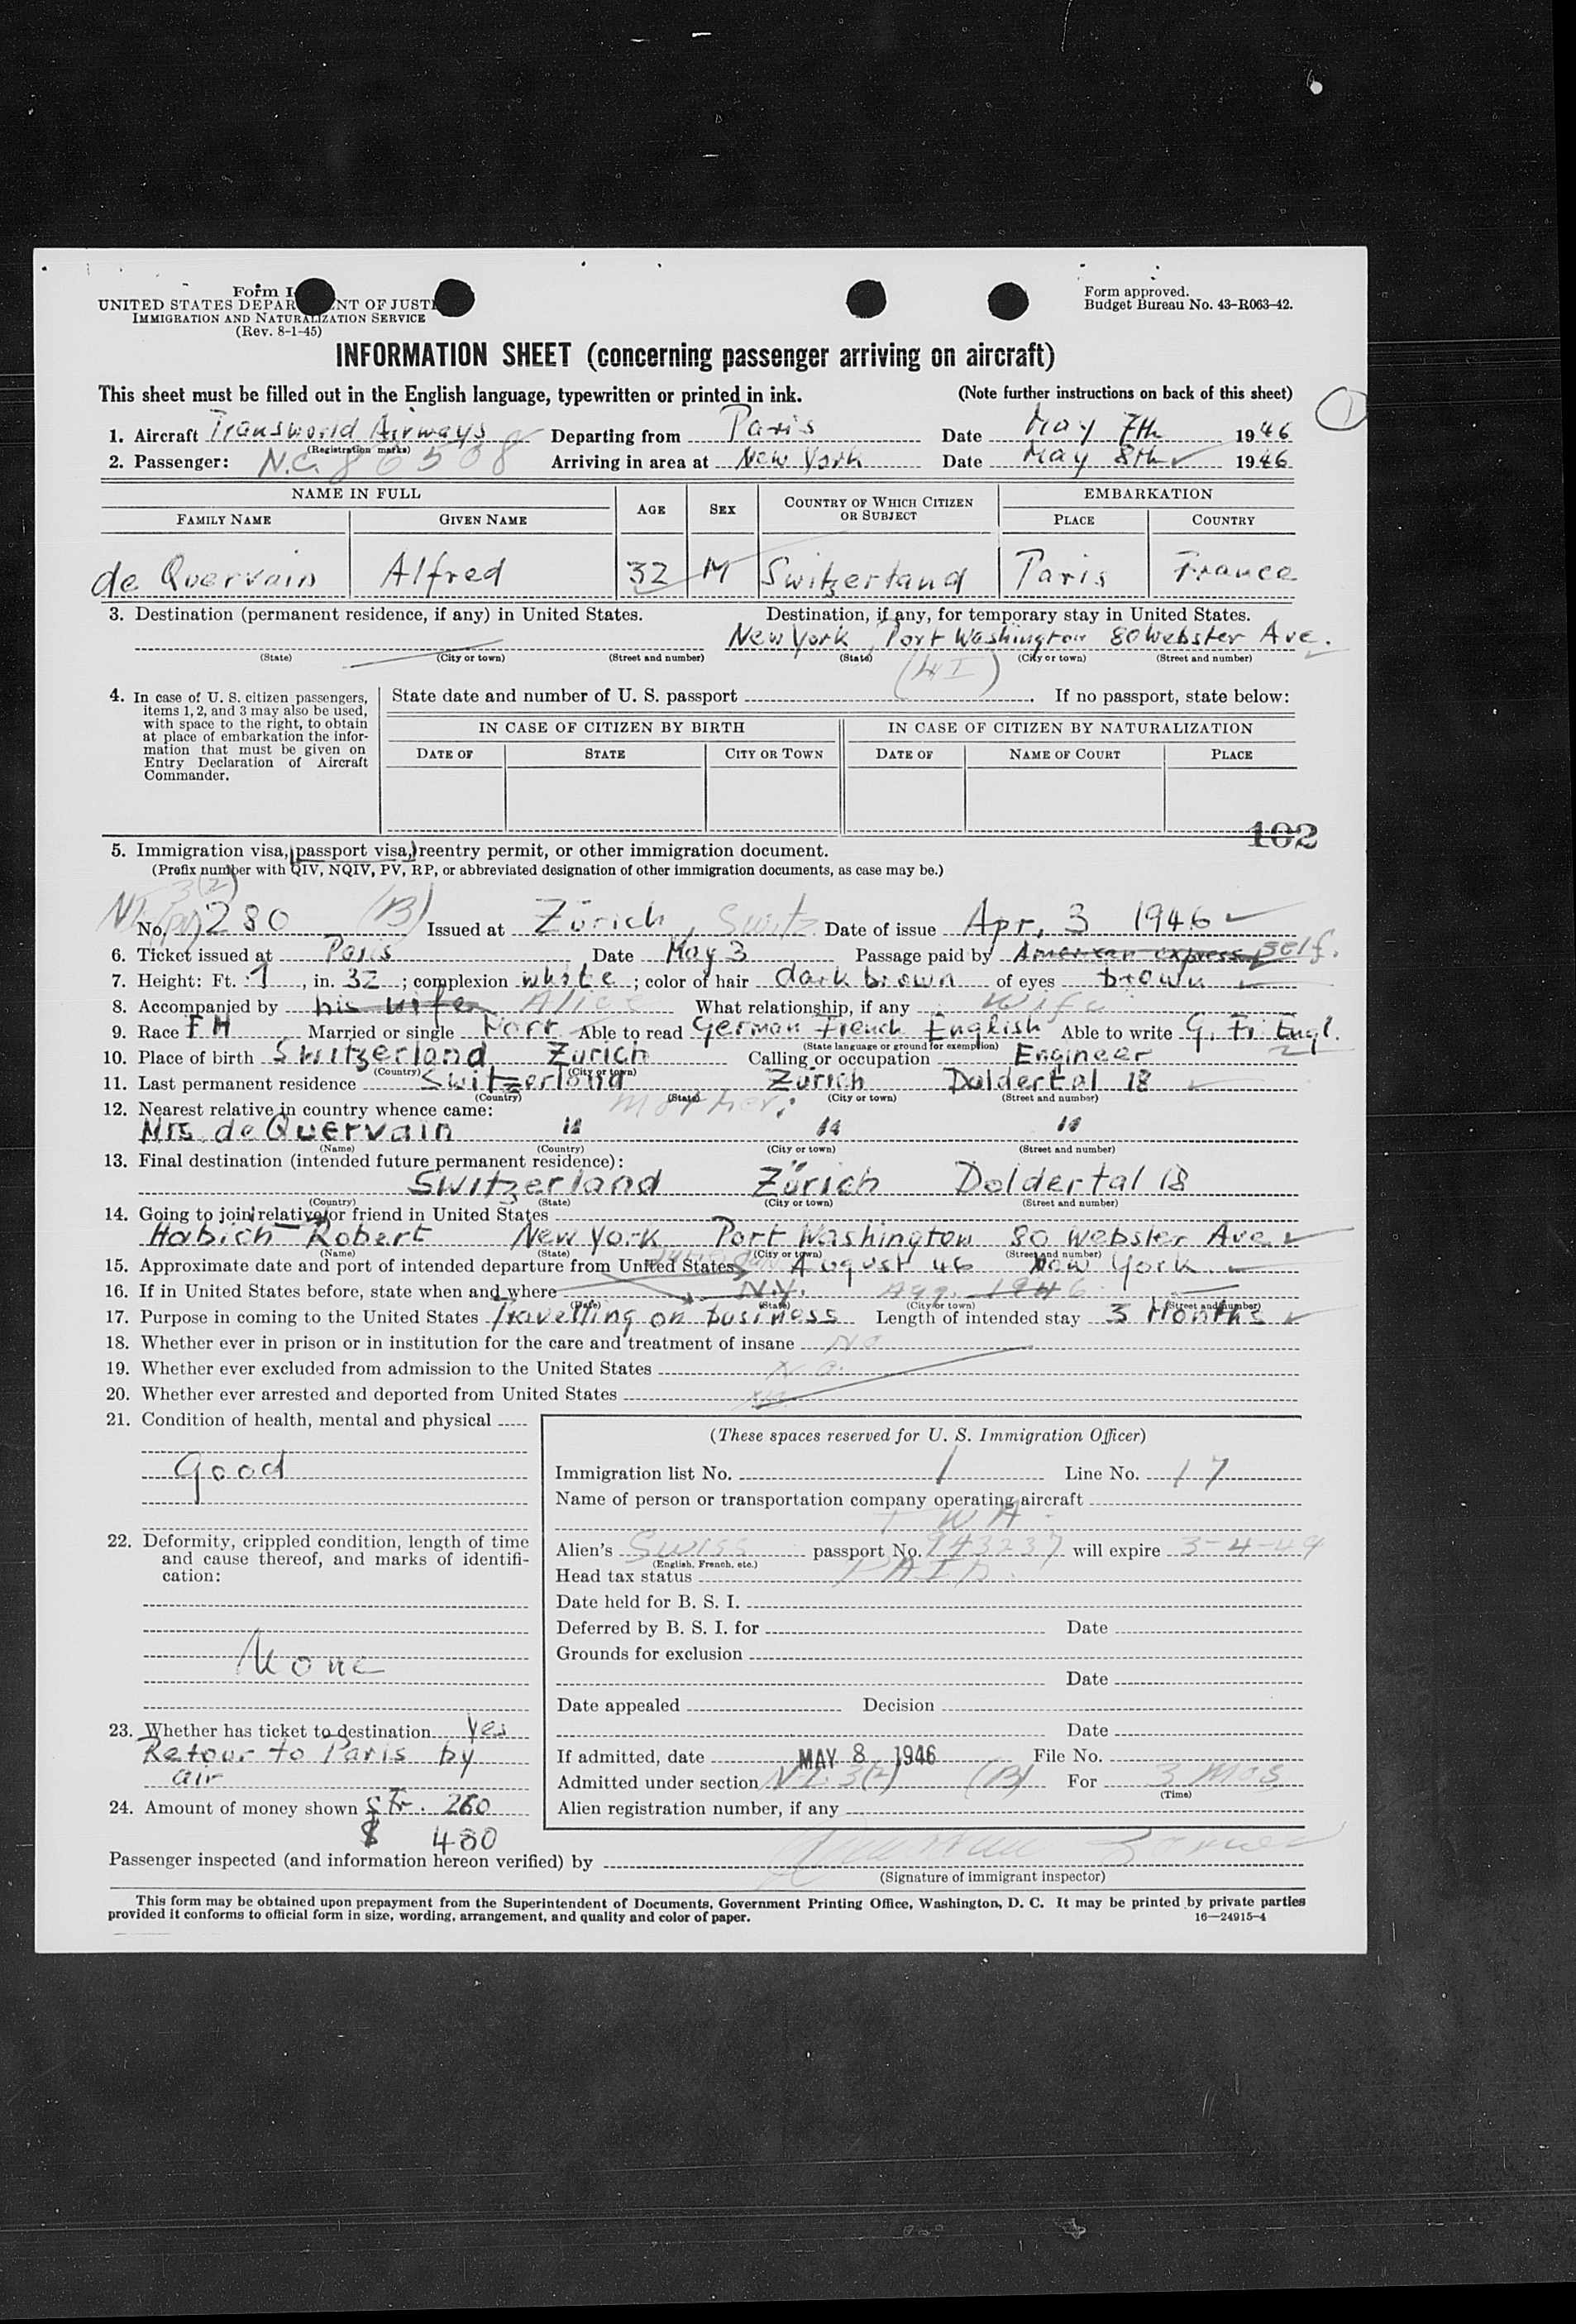 Form I-
UNITED STATES DEPAR NT OF JUST
IMMIGRATION AND NATURALIZATION SERVICE
(Rev. 8-1-45)
Form approved.
Budget Bureau No. 43-R063-42.
INFORMATION SHEET (concerning passenger arriving on aircraft)
This sheet must be filled out in the English language, typewritten or printed in ink. (Note further instructions on back of this sheet)
1. Aircraft Transworld Airways Departing from Paris Date May 7th 1946
(Registration marks)
2. Passenger: N.C 86508 Arriving in area at New York Date May 8th 1946
NAME IN FULL AGE SEX COUNTRY OF WHICH CITIZEN OR SUBJECT EMBARKATION
FAMILY NAME GIVEN NAME PLACE COUNTRY
de Quervain Alfred 32 M Switzerland Paris France
3. Destination (permanent residence, if any) in United States. Destination, if any, for temporary stay in United States.
New York, Port Washington 80 Webster Ave.
(State) (City or town) (Street and number) (State) (City or town) (Street and number)
(4I)
4. In case of U. S. citizen passengers, items 1, 2, and 3 may also be used, with space to the right, to obtain at place of embarkation the information that must be given on Entry Declaration of Aircraft Commander.
State date and number of U. S. passport . If no passport, state below:
IN CASE OF CITIZEN BY BIRTH IN CASE OF CITIZEN BY NATURALIZATION
DATE OF STATE CITY OR TOWN DATE OF NAME OF COURT PLACE
102
5. Immigration visa, passport visa, reentry permit, or other immigration document.
(Prefix number with QIV, NQIV, PV, RP, or abbreviated designation of other immigration documents, as case may be.)
3(2)
No. (PV) 280 (B) Issued at Zürich, Switz Date of issue Apr. 3 1946
6. Ticket issued at Paris Date May 3 Passage paid by American express self.
7. Height: Ft. 1, in. 32; complexion white; color of hair dark brown of eyes brown
8. Accompanied by his wife Alice What relationship, if any Wife
9. Race FH Married or single Marr. Able to read German French English Able to write G. Fr. Engl.
(State language or ground for exemption)
10. Place of birth Switzerland Zürich Calling or occupation Engineer
(Country) (City or town)
11. Last permanent residence Switzerland Zürich Doldertal 18
(Country) (State) (City or town) (Street and number)
12. Nearest relative in country whence came: Mother:
Mrs. de Quervain " " "
(Name) (Country) (City or town) (Street and number)
13. Final destination (intended future permanent residence):
Switzerland Zürich Doldertal 18
(Country) (State) (City or town) (Street and number)
14. Going to join relative or friend in United States
Habich Robert New York Port Washington 80 Webster Ave
(Name) (State) (City or town) (Street and number)
15. Approximate date and port of intended departure from United States August 46 New York
16. If in United States before, state when and where N.Y. Aug. 1946
(Date) (State) (City or town) (Street and number)
17. Purpose in coming to the United States Travelling on business Length of intended stay 3 Months
18. Whether ever in prison or in institution for the care and treatment of insane No
19. Whether ever excluded from admission to the United States No.
20. Whether ever arrested and deported from United States
21. Condition of health, mental and physical
Good
22. Deformity, crippled condition, length of time and cause thereof, and marks of identification:
None
23. Whether has ticket to destination Yes
Retour to Paris by
air
24. Amount of money shown sFr. 260
$ 480
(These spaces reserved for U. S. Immigration Officer)
Immigration list No. 1 Line No. 17
Name of person or transportation company operating aircraft
TWA
Alien's Swiss passport No. 943237 will expire 3-4-49
(English, French, etc.)
Head tax status PAID.
Date held for B. S. I.
Deferred by B. S. I. for Date
Grounds for exclusion
Date
Date appealed Decision
Date
If admitted, date MAY 8 1946 File No.
Admitted under section V1. 3(2) (B) For 3 Mos
(Time)
Alien registration number, if any
Passenger inspected (and information hereon verified) by
(Signature of immigrant inspector)
This form may be obtained upon prepayment from the Superintendent of Documents, Government Printing Office, Washington, D. C. It may be printed by private parties
provided it conforms to official form in size, wording, arrangement, and quality and color of paper. 16—24915-4